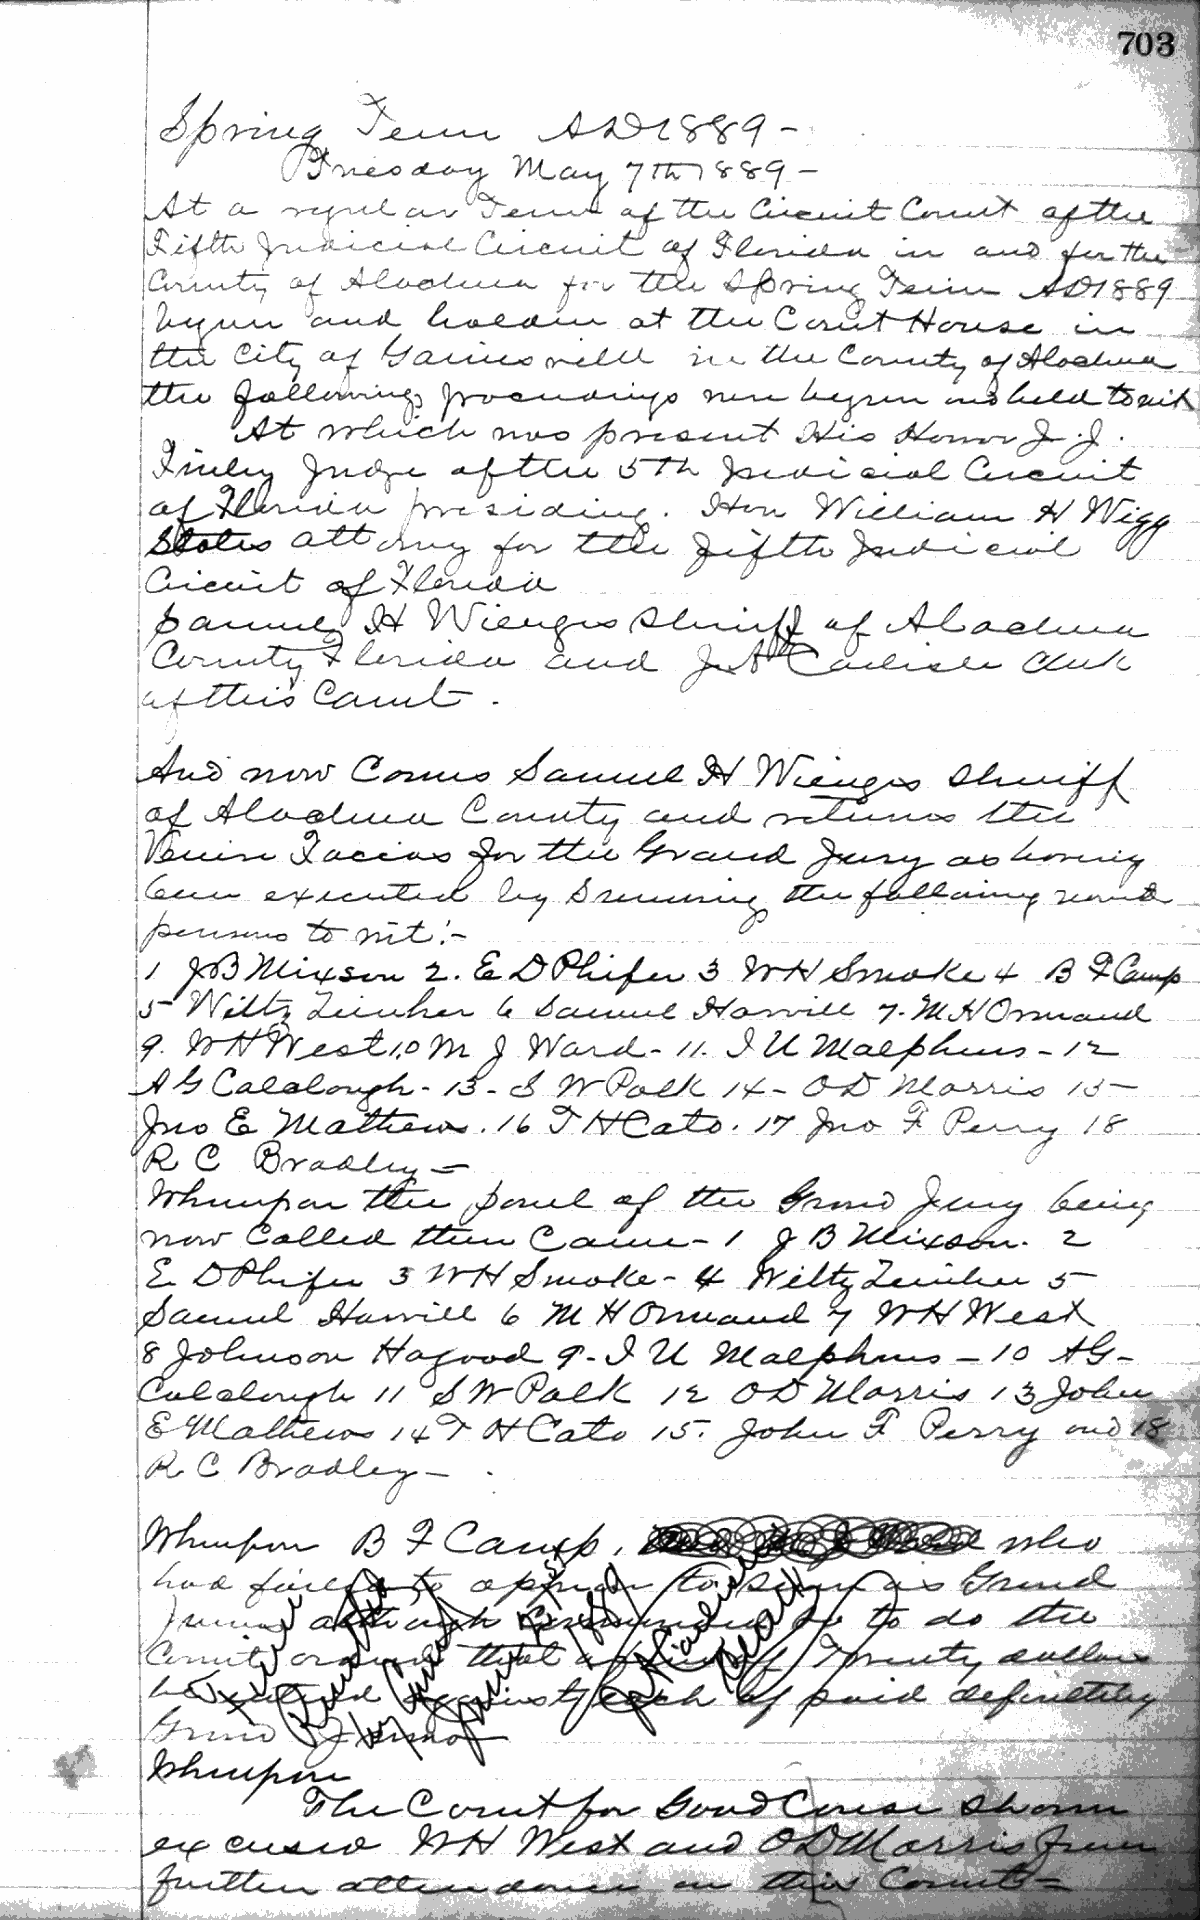 703
Spring Term AD 1889 -
Tuesday May 7th 1889 -
At a regular Term of the Circuit Court of the
Fifth Judicial Circuit of Florida in and for the
County of Alachua for the Spring Term AD 1889
begun and holden at the Court House in
the City of Gainesville in the County of Alachua
the following proceedings were begun and held to wit
At which was present His Honor J. J.
Finley Judge of the 5th Judicial Circuit
of Florida presiding. Hon William H Wigg
States attorney for the Fifth Judicial
Circuit of Florida
Samuel H Wienges Sheriff of Alachua
County Florida and J. A Carlisle Clerk
of this Court.
And now Comes Samuel H Wienges Sheriff
of Alachua County and returns the
Venire Facias for the Grand Jury as having
been executed by Summing the following named
persons to wit:-
1 J B Mixson 2. E D Phifer 3 W H Smoke 4 B F Camp
5 Wiltz 6 Samuel Harvill 7. M H Ormand
9. W H West 10 M J Ward - 11. I U Malphurs - 12
A G Calclough - 13 - S W Polk 14 - O D Morris 15 -
Jno E Mathews. 16 T H Cato. 17 Jno F Perry 18
R C Bradley =
Whereupon the panel of the Grand Jury being
now Called then Came - 1 J B Mixson. 2
E D Phifer 3 W H Smoke - 4 Wiltz 5
Samuel Harvill 6 M H Ormand 7 W H West
8 Johnson Hagood 9 - I U Malphurs - 10 A G -
Calclough 11 S W Polk 12 O D Morris 13 John
E Mathews 14 T H Cato 15. John F Perry and 18
R C Bradley -
Whereupon B F Camp. who
had failed to appear to serve as Grand
Juror although summoned so to do the
Court orders that a fine of Twenty dollars
be entered against each of said defaulting
Grand Jurors
Whereupon
The Court for Good Cause shown
excused W H West and O D Morris from
further attendance on this Court =